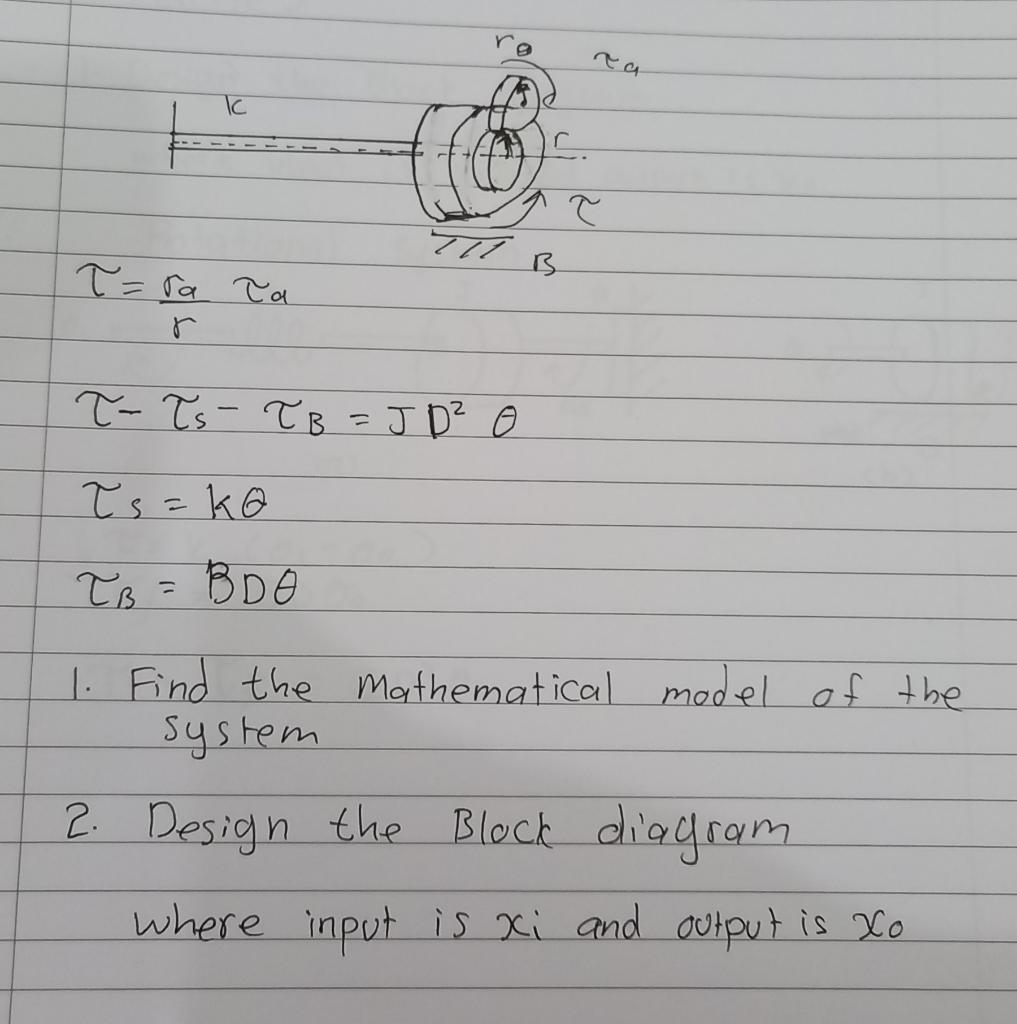 rₐ τₐ
k
r
τ
B
τ = rₐ/r τₐ
τ - τₛ - τ_B = J D² θ
τₛ = kθ
τ_B = BDθ
1. Find the Mathematical model of the
system
2. Design the Block diagram
where input is xi and output is xo